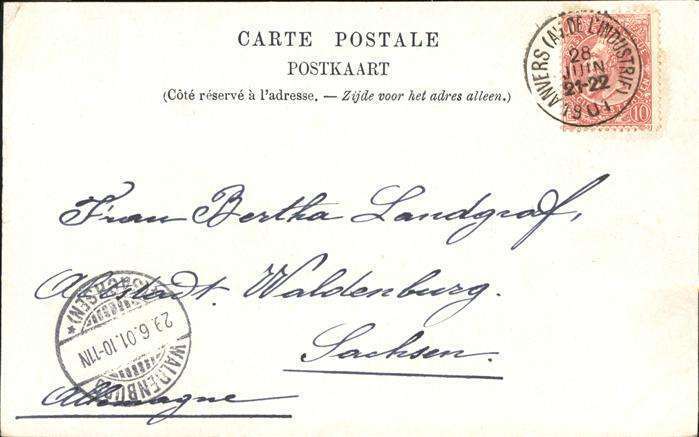 CARTE POSTALE
POSTKAART
(Côté réservé à l'adresse. — Zijde voor het adres alleen.)
ANVERS (Av. DE L'INDUSTRIE)
28
JUIN
21-22
1901
10
Frau Bertha Landgraf,
Altstadt Waldenburg.
Sachsen.
Allemagne
(SACHSEN)
29.6.01.10-11N
WALDENBURG